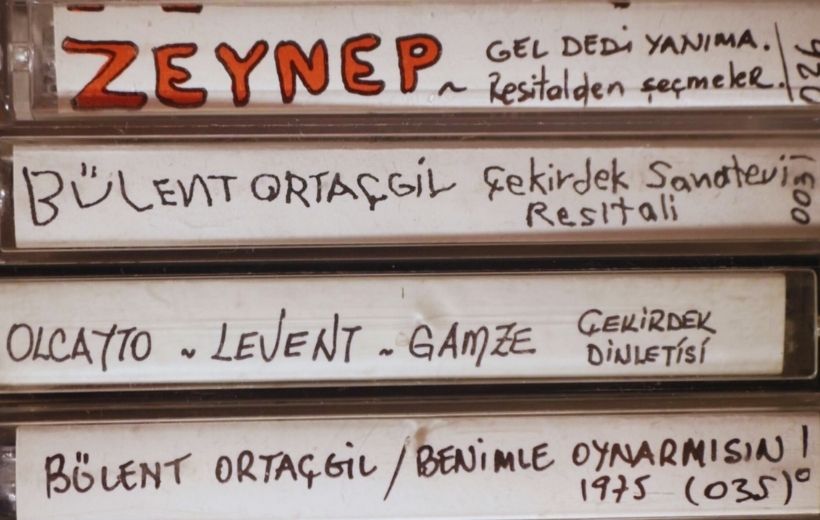 ZEYNEP ~ GEL DEDİ YANIMA.
Resitalden seçmeler.
026
BÜLENT ORTAÇGİL Çekirdek Sanatevi
Resitali
003
OLCAYTO ~ LEVENT ~ GAMZE ÇEKİRDEK
DİNLETİSİ
BÜLENT ORTAÇGİL / BENİMLE OYNARMISIN !
1975 (035)